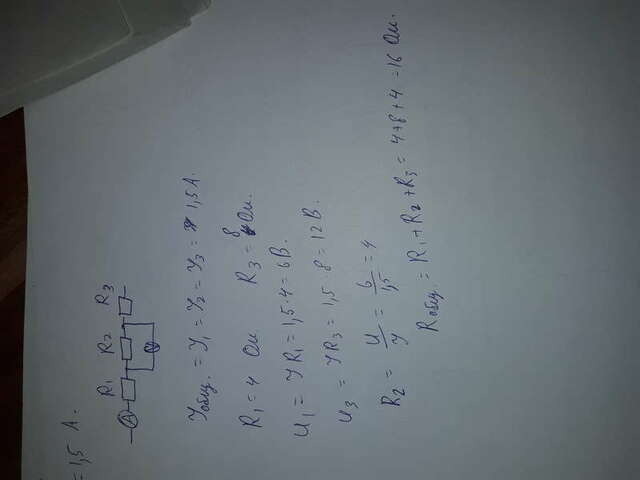 = 1,5 А.
R1 R2 R3
A
V
Yобщ. = Y1 = Y2 = Y3 = 1,5 А.
R1 = 4 Ом R3 = 8 Ом.
U1 = YR1 = 1,5 · 4 = 6 В.
U3 = YR3 = 1,5 · 8 = 12 В.
R2 = U/Y = 6/1,5 = 4
Rобщ. = R1 + R2 + R3 = 4+8+4 = 16 Ом.